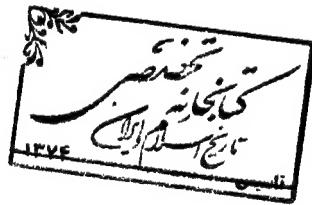 کتابخانه تخصصی
تاریخ اسلام و ایران
۱۳۷۴
تاسیس